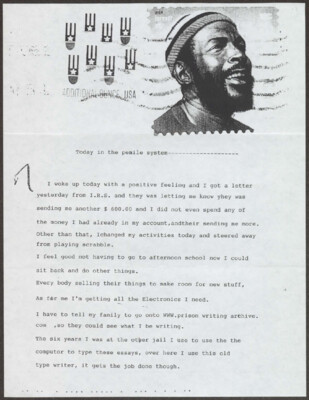 ADDITIONAL OUNCE USA
Today in the penile system--------------------
I woke up today with a positive feeling and I got a letter
yesterday from I.R.S. and they was letting me know yhey was
sending me another $ 600.00 and I did not even spend any of
the money I had already in my account.andtheir sending me more.
Other than that, Ichanged my activities today and steered away
from playing scrabble.
I feel good not having to go to afternoon school now I could
sit back and do other things.
Every body selling their things to make room for new stuff,
As far me I'm getting all the Electronics I need.
I have to tell my family to go onto WWW.prison writing archive.
com ,so they could see what I be writing.
The six years I was at the other jail I use to use the the
computor to type these essays, over here I use this old
type writer, it gets the job done though.